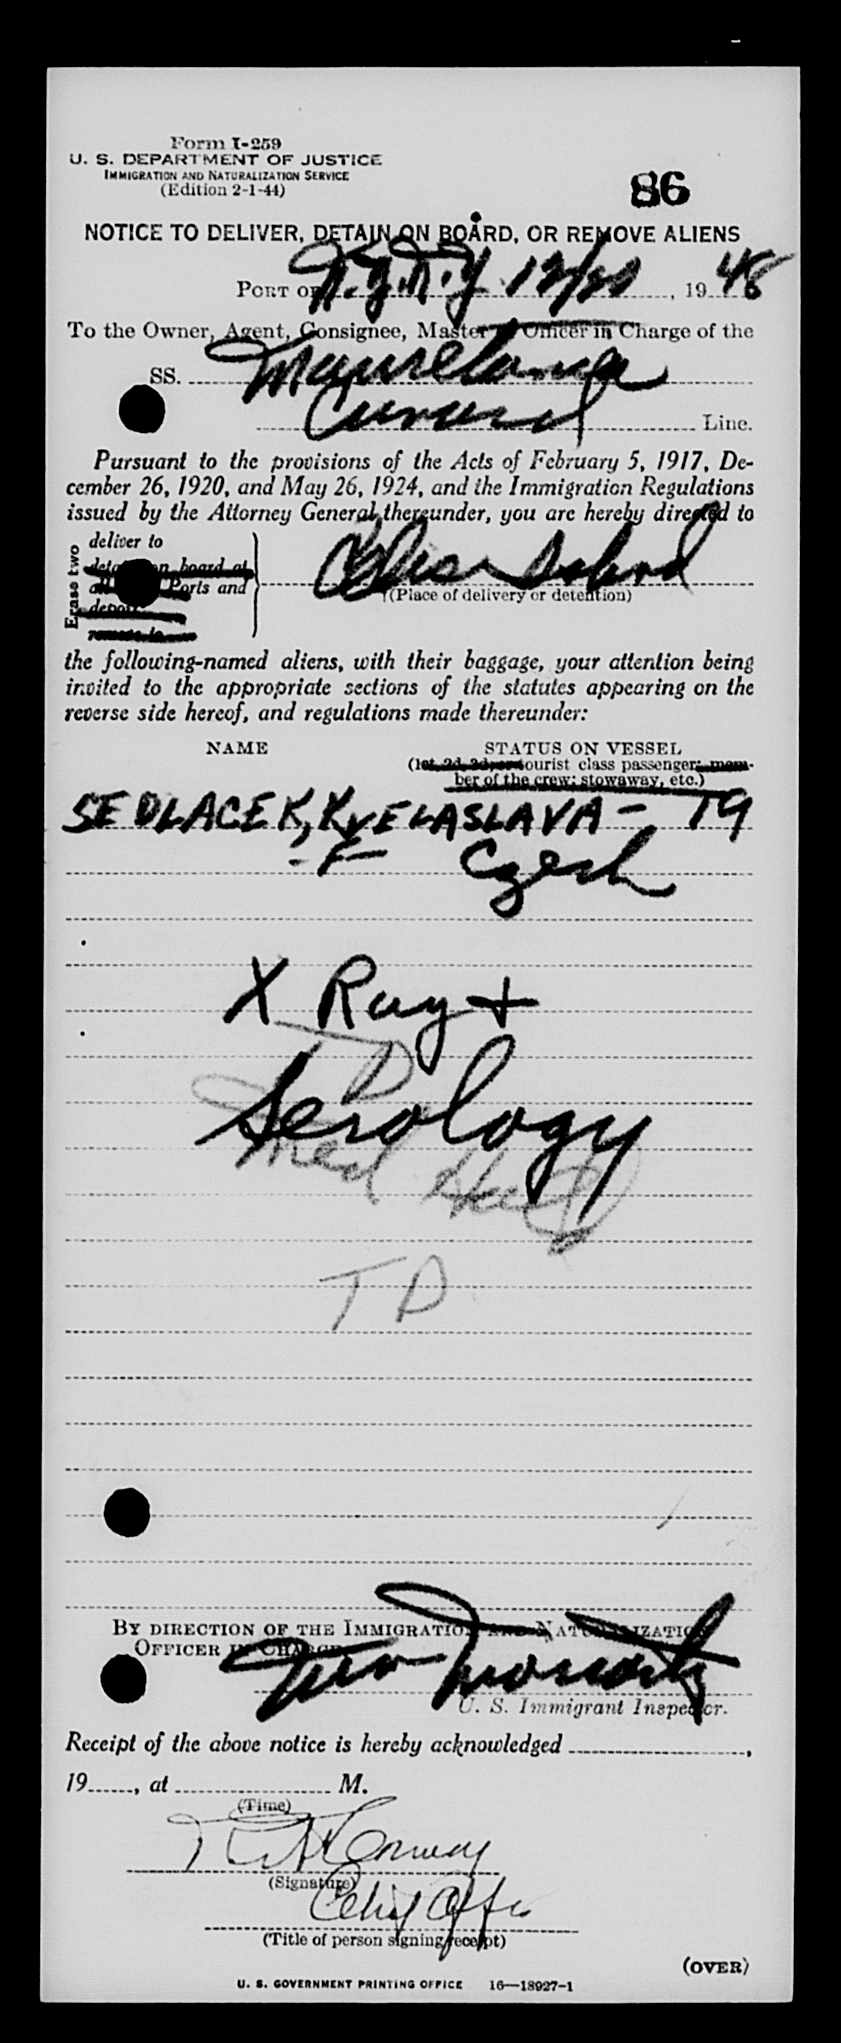 Form I-259
U. S. DEPARTMENT OF JUSTICE
IMMIGRATION AND NATURALIZATION SERVICE
(Edition 2-1-44)
86
NOTICE TO DELIVER, DETAIN ON BOARD, OR REMOVE ALIENS
PORT OF N.Y.N.Y 12/20, 1948
To the Owner, Agent, Consignee, Master or Officer in Charge of the
SS. Mauretania
Cunard Line.
Pursuant to the provisions of the Acts of February 5, 1917, De-
cember 26, 1920, and May 26, 1924, and the Immigration Regulations
issued by the Attorney General thereunder, you are hereby directed to
Erase two
deliver to
detain on board at
all Ports and
deport
remove to
Ellis Island
(Place of delivery or detention)
the following-named aliens, with their baggage, your attention being
invited to the appropriate sections of the statutes appearing on the
reverse side hereof, and regulations made thereunder:
NAME STATUS ON VESSEL
(1st, 2d, 3d, or tourist class passenger; mem-
ber of the crew; stowaway, etc.)
SEDLACEK, KVELASLAVA - 19
- F - Czech
X Ray +
Serology
Med
TD
BY DIRECTION OF THE IMMIGRATION AND NATURALIZATION
OFFICER IN CHARGE
U. S. Immigrant Inspector.
Receipt of the above notice is hereby acknowledged ,
19 , at M.
(Time)
Conway
(Signature)
Chief Offr
(Title of person signing receipt)
(OVER)
U. S. GOVERNMENT PRINTING OFFICE 16—18927-1